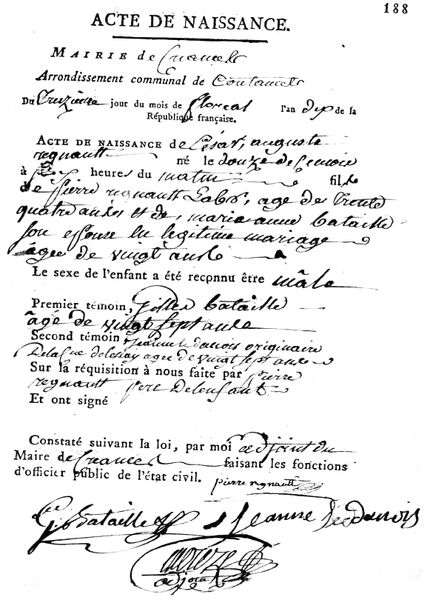 188
ACTE DE NAISSANCE.
MAIRIE de
Arrondissement communal de Coutances
Du jour du mois de floreal l'an dix de la
République française.
ACTE DE NAISSANCE de César, auguste
regnault né le douze de
à heures du matin fils
de pierre regnault age de trente
quatre et de, maria anne bataille
son epouse en legitime mariage
âgée de vingt
Le sexe de l'enfant a été reconnu être mâle
Premier témoin, bataille
âge de vingt sept
Second témoin jeanne ledanois originaire
agée de vingt sept
Sur la réquisition à nous faite par pierre
regnault pere delenfant
Et ont signé
Constaté suivant la loi, par moi adjoint du
Maire de faisant les fonctions
d'officier public de l'état civil. pierre regnault
G. bataille jeanne ledanois
adjoint